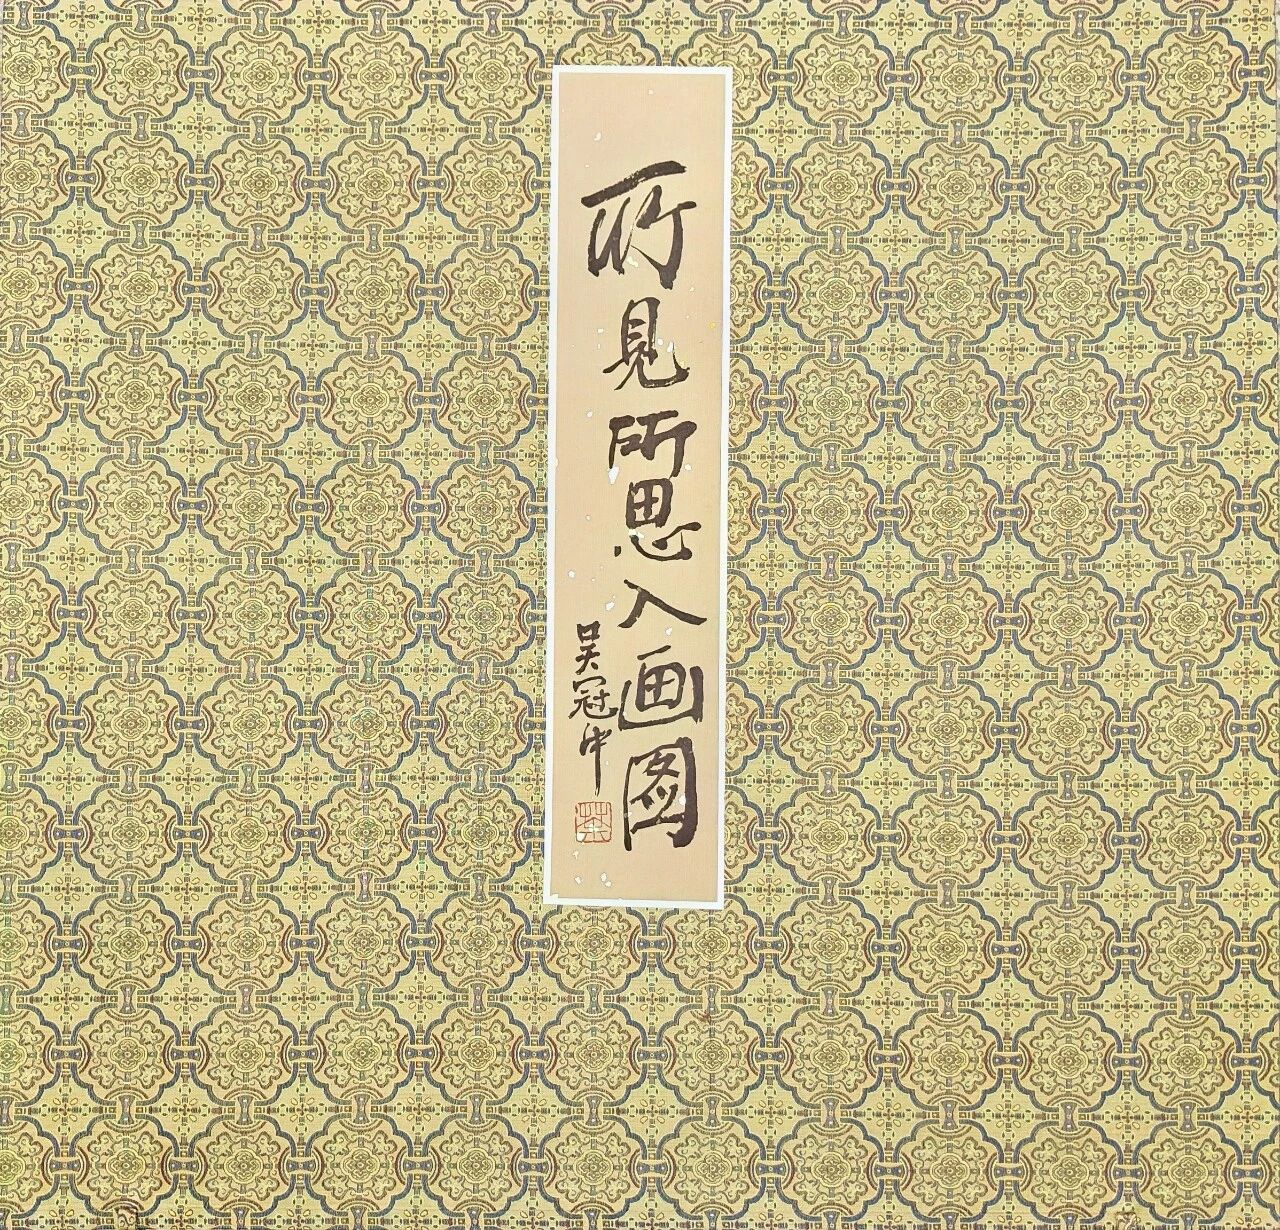 所見所思入画图
吴冠中
荼